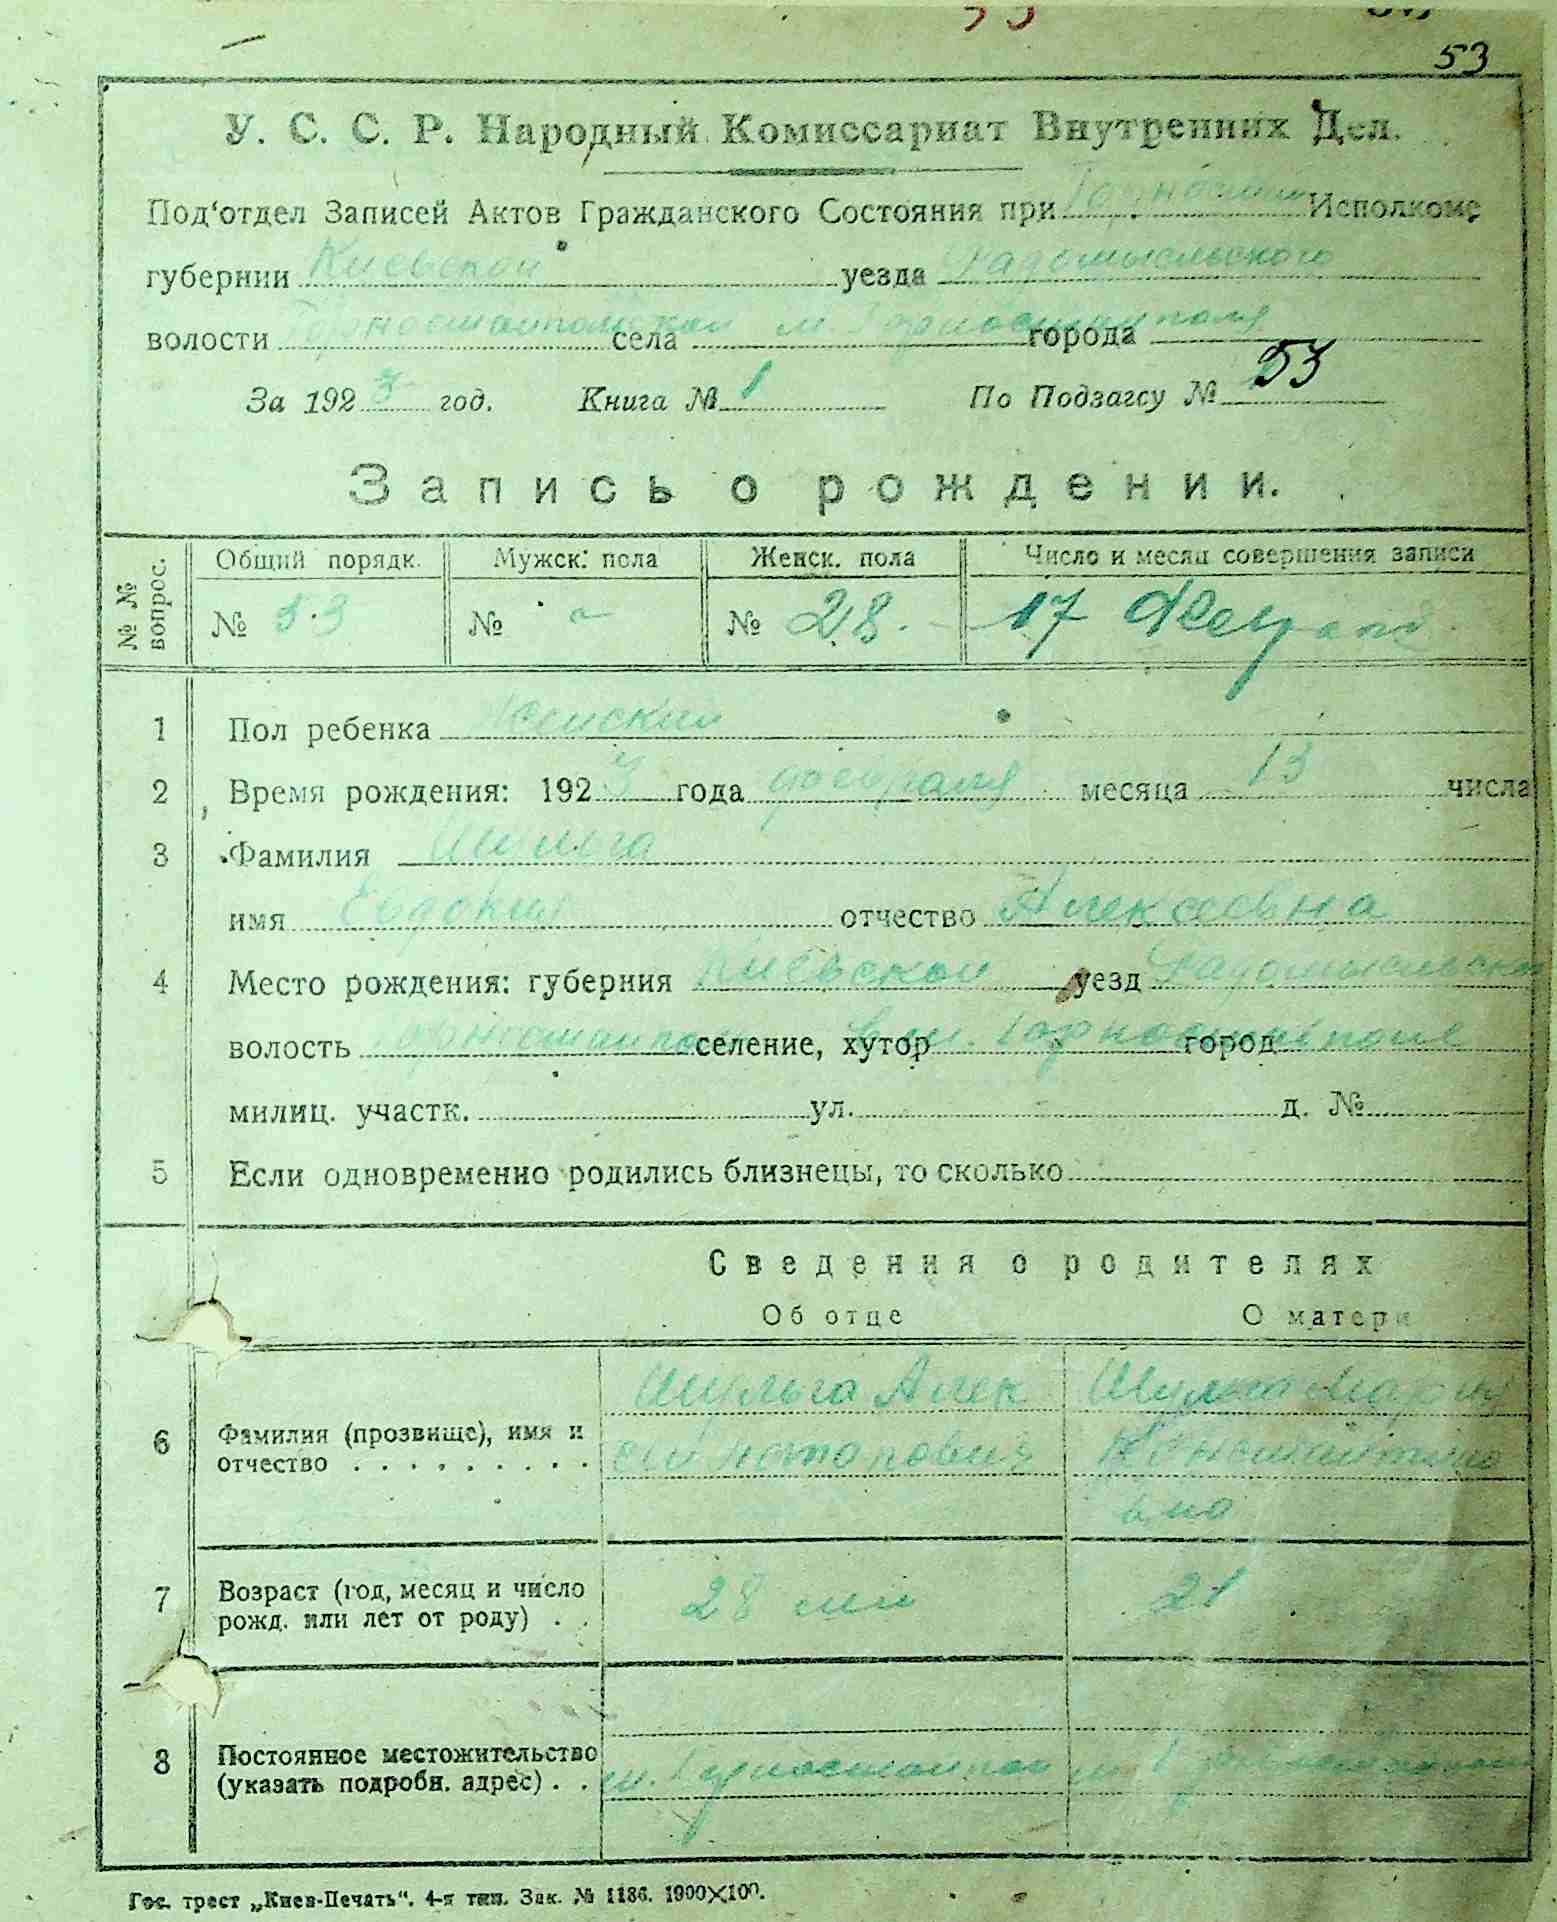 53
У. С. С. Р. Народный Комиссариат Внутренних Дел.
Под‘отдел Записей Актов Гражданского Состояния при Горностай Исполкоме
губернии Киевской уезда Радомысльского
волости Горностайпольской села м. Горностайполя города
За 1923 год. Книга № 1 По Подзагсу № 53
Запись о рождении.
№ № вопрос. Общий порядк. Мужск. пола Женск. пола Число и месяц совершения записи
№ 53 № ~ № 28. 17
1 Пол ребенка женский
2 Время рождения: 1923 года февраля месяца 13 числа
3 Фамилия Шульга
имя Евдокия отчество Алексеевна
4 Место рождения: губерния Киевской уезд Радомысльской
волость Горностайпол селение, хутор в м. Горностайполе город
милиц. участк. ул. д. №
5 Если одновременно родились близнецы, то сколько
Сведения о родителях
Об отце О матери
Шульга Алек Шульга Мария
6 Фамилия (прозвище), имя и отчество сей Потапович Константино
вна
7 Возраст (год, месяц и число рожд. или лет от роду) 28 лет 21
8 Постоянное местожительство (указать подробн. адрес) м. Горностайпол м. Горностайпол
Гос. трест „Киев-Печать“. 4-я тип. Зак. № 1186. 1900×100.